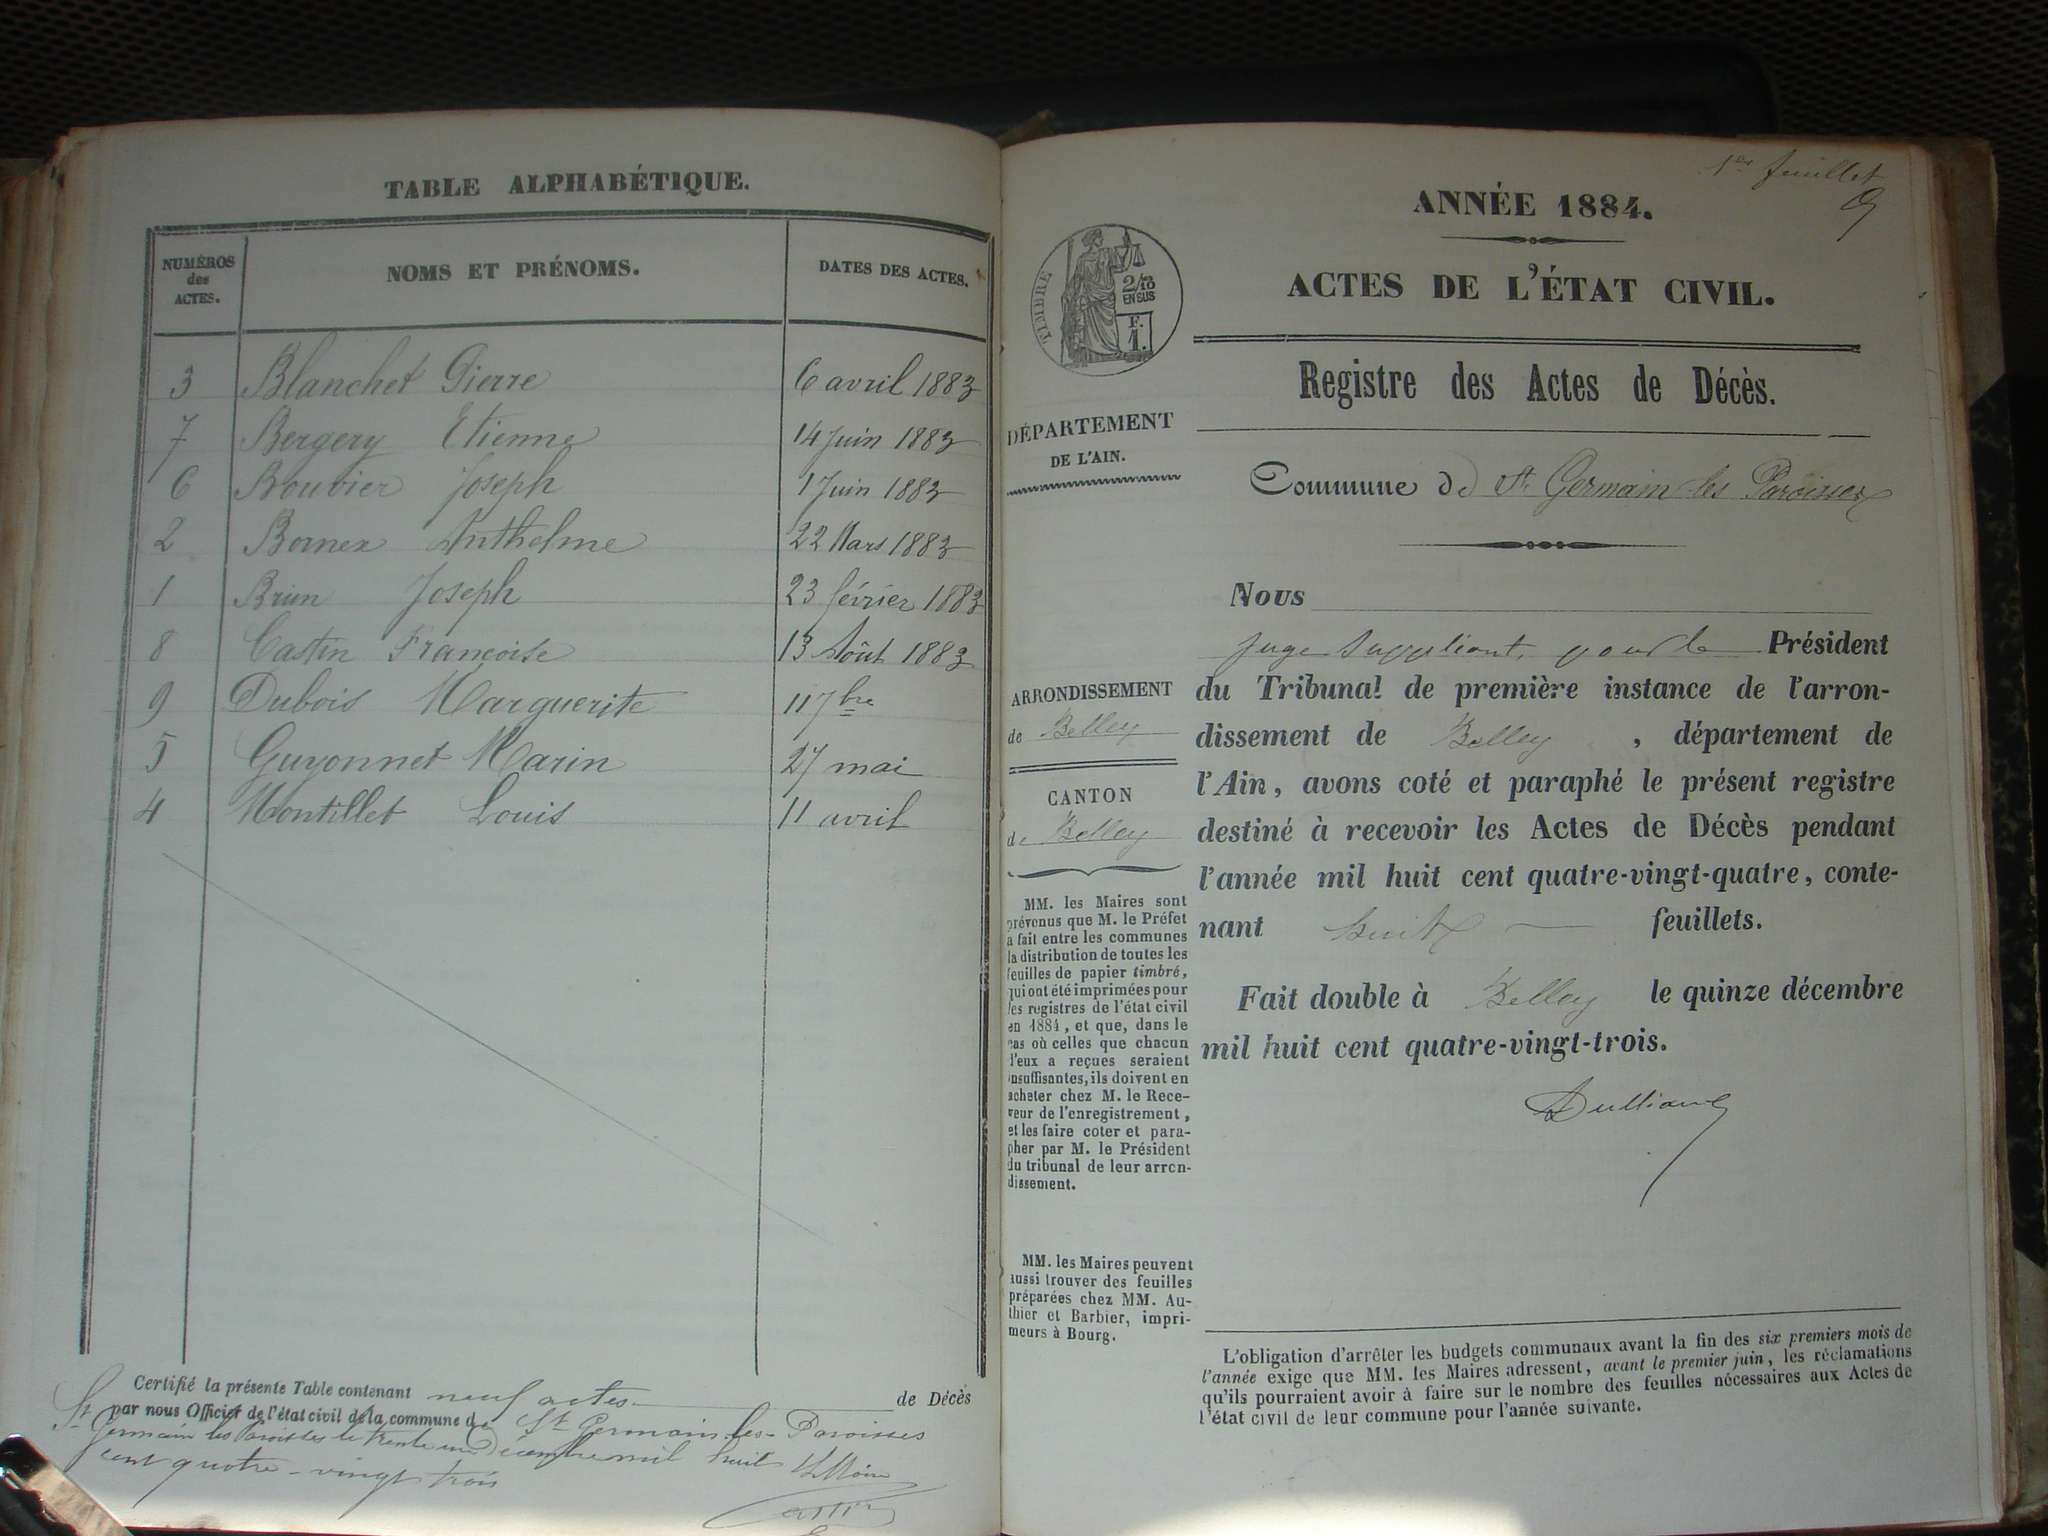 TABLE ALPHABÉTIQUE.
NUMÉROS
des
ACTES.
NOMS ET PRÉNOMS.
DATES DES ACTES.
3 Blanchet Pierre 6 avril 1883
7 Bergery Etienne 14 Juin 1883
6 Bouvier Joseph 1 Juin 1883
2 Bornex Anthelme 22 Mars 1883
1 Brun Joseph 23 février 1883
8 Castin Françoise 13 Août 1883
9 Dubois Marguerite 11 7bre
5 Guyonnet Marin 27 mai
4 Montillet Louis 11 avril
Certifié la présente Table contenant neuf actes de Décès
par nous Officier de l'état civil de la commune de St Germain-les-Paroisses
St Germain les Paroisses le trente un Décembre mil huit
cent quatre-vingt trois
Le Maire
Castin
1er feuillet
ANNÉE 1884.
ACTES DE L'ÉTAT CIVIL.
TIMBRE
2/10
EN SUS
F.
1.
Registre des Actes de Décès.
DÉPARTEMENT
DE L'AIN.
Commune de St Germain les Paroisses
Nous
juge suppléant, pour le Président
du Tribunal de première instance de l'arron-
dissement de Belley, département de
l'Ain, avons coté et paraphé le présent registre
destiné à recevoir les Actes de Décès pendant
l'année mil huit cent quatre-vingt-quatre, conte-
nant huit feuillets.
Fait double à Belley le quinze décembre
mil huit cent quatre-vingt-trois.
ARRONDISSEMENT
de Belley
CANTON
de Belley
MM. les Maires sont
prévenus que M. le Préfet
a fait entre les communes
la distribution de toutes les
feuilles de papier timbré,
qui ont été imprimées pour
les registres de l'état civil
en 1884, et que, dans le
cas où celles que chacun
d'eux a reçues seraient
insuffisantes, ils doivent en
acheter chez M. le Rece-
veur de l'enregistrement,
et les faire coter et para-
pher par M. le Président
du tribunal de leur arron-
dissement.
MM. les Maires peuvent
aussi trouver des feuilles
préparées chez MM. Au-
thier et Barbier, impri-
meurs à Bourg.
L'obligation d'arrêter les budgets communaux avant la fin des six premiers mois de
l'année exige que MM. les Maires adressent, avant le premier juin, les réclamations
qu'ils pourraient avoir à faire sur le nombre des feuilles nécessaires aux Actes de
l'état civil de leur commune pour l'année suivante.